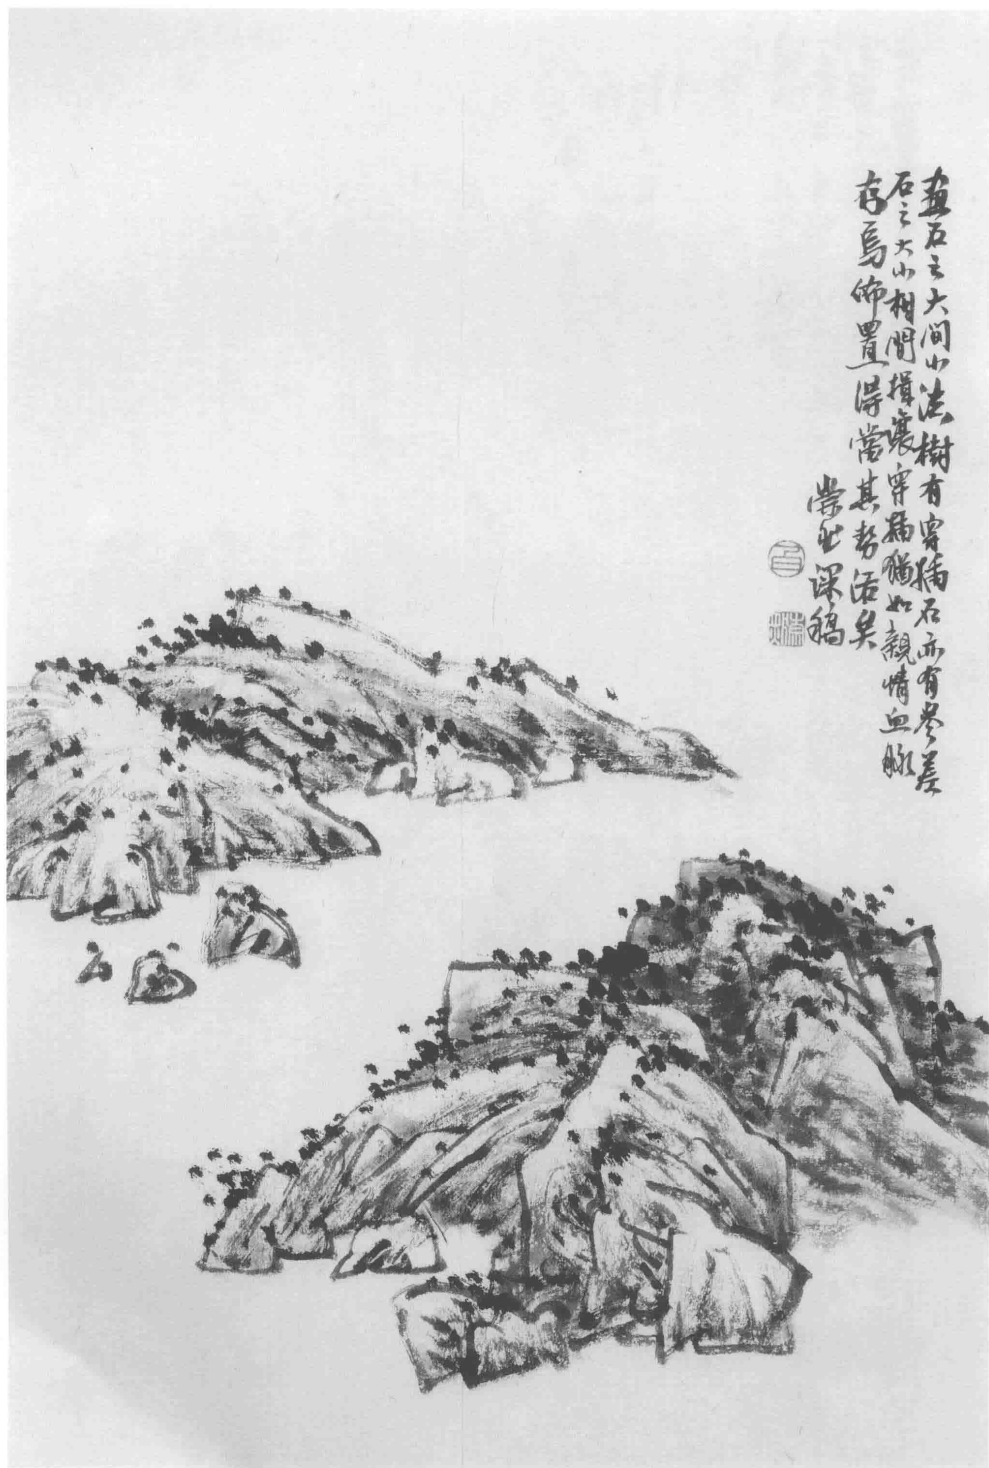 畫石之大间小法樹有穿插石亦有參差
石之大小相間揖讓穿插猶如親情血脉
存焉佈置得當其势活矣
崇 课稿